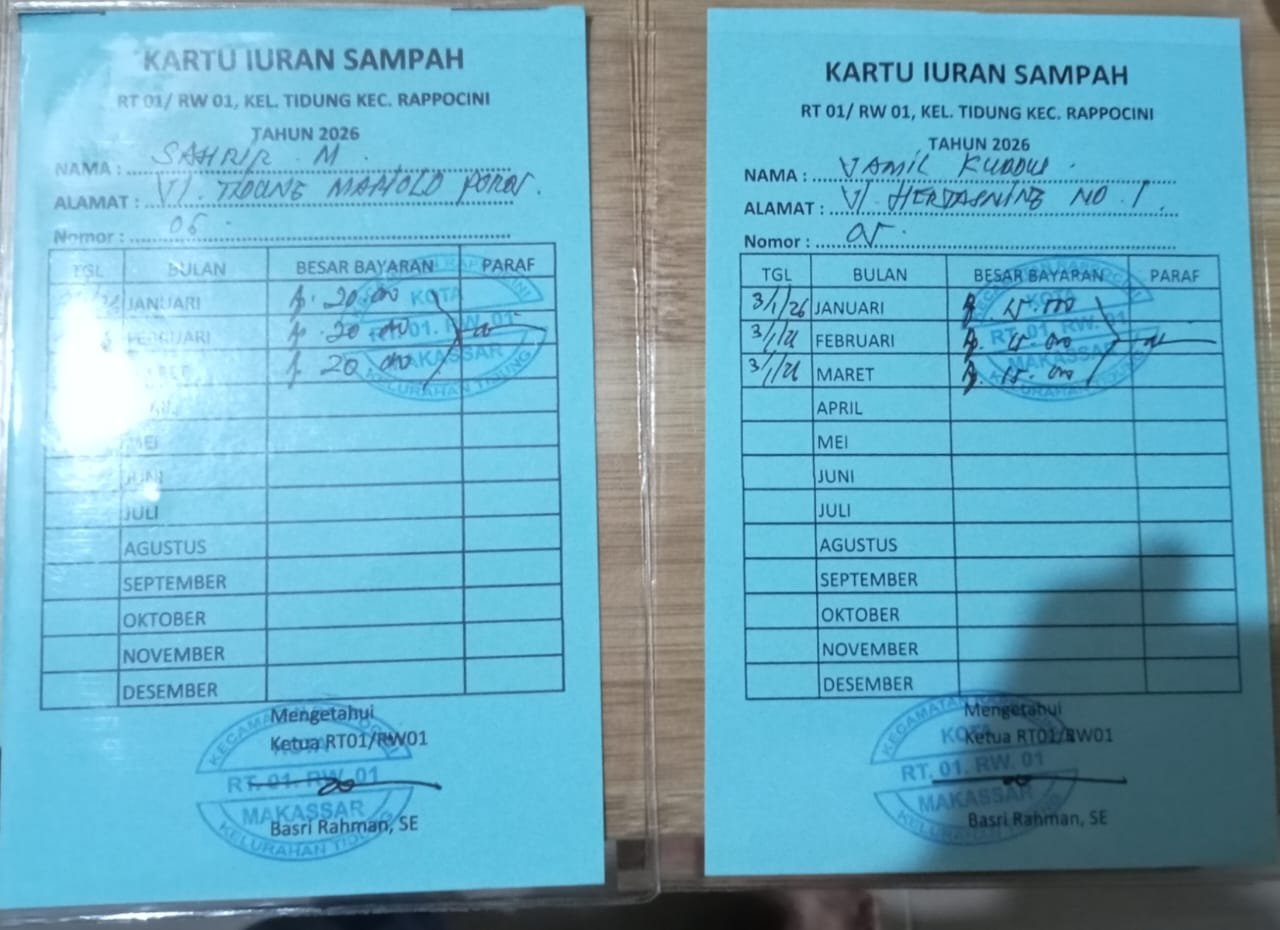 KARTU IURAN SAMPAH
RT 01/ RW 01, KEL. TIDUNG KEC. RAPPOCINI
TAHUN 2026
NAMA : SAHRIR M.
ALAMAT : Jl. TIDUNG
Nomor : 05
TGL BULAN BESAR BAYARAN PARAF
JANUARI Rp. 20.000
FEBRUARI Rp. 20.000
MARET Rp. 20.000
APRIL
MEI
JUNI
JULI
AGUSTUS
SEPTEMBER
OKTOBER
NOVEMBER
DESEMBER
Mengetahui
Ketua RT01/RW01
Basri Rahman, SE
KOTA
RT. 01. RW. 01
MAKASSAR
KELURAHAN TIDUNG
KARTU IURAN SAMPAH
RT 01/ RW 01, KEL. TIDUNG KEC. RAPPOCINI
TAHUN 2026
NAMA : JAMIL KUDDUS
ALAMAT : Jl. HERTASNING NO. 1
Nomor :
TGL BULAN BESAR BAYARAN PARAF
3/1/26 JANUARI Rp. 15.000
3/1/26 FEBRUARI Rp. 15.000
3/1/26 MARET Rp. 15.000
APRIL
MEI
JUNI
JULI
AGUSTUS
SEPTEMBER
OKTOBER
NOVEMBER
DESEMBER
Mengetahui
Ketua RT01/RW01
Basri Rahman, SE
KOTA
RT. 01. RW. 01
MAKASSAR
KELURAHAN TIDUNG